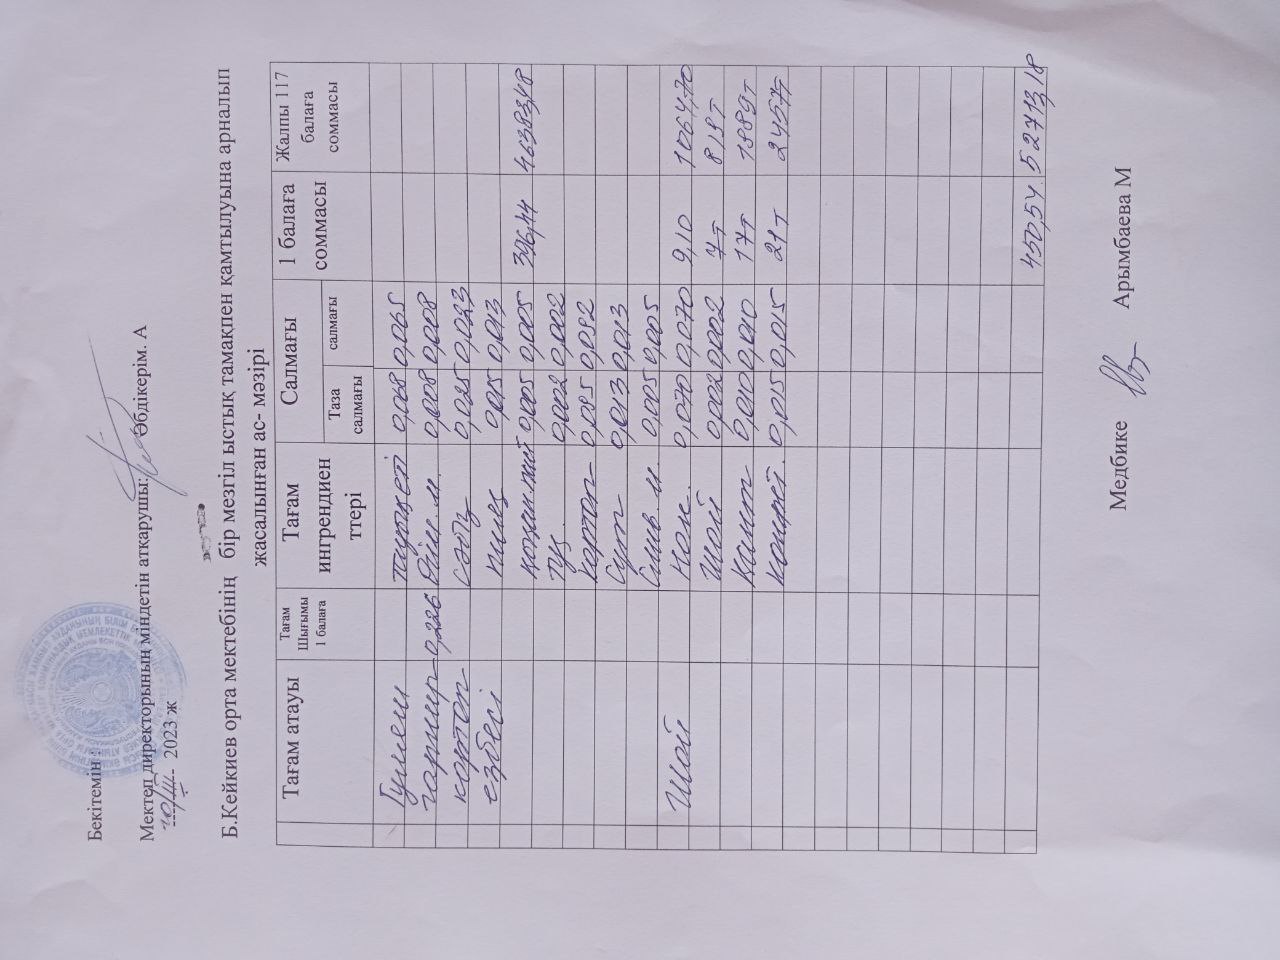 Бекітемін
Мектеп директорының міндетін атқарушы: Әбдікерім. А
10/III- 2023 ж
Б.Кейкиев орта мектебінің бір мезгіл ыстық тамақпен қамтылуына арналып
жасалынған ас- мәзірі
Тағам атауы Тағам Шығымы 1 балаға Тағам ингрендиенттері Салмағы 1 балаға соммасы Жалпы 117 балаға соммасы
Таза салмағы салмағы
Гуляш 0,068 0,065
гарнир 0,226 Өсім.м. 0,008 0,008
картоп сәбіз 0,025 0,023
езбесі пияз 0,015 0,013
0,005 0,005 396,44 46383,48
тұз 0,002 0,002
картоп 0,085 0,082
Сүт 0,013 0,013
Слив.м 0,005 0,005
Шай Нан. 0,070 0,070 9,10 1064,70
Шай 0,002 0,002 7т 819т
Қант 0,010 0,010 17т 1989т
конфет. 0,015 0,015 21т 2457т
450,54 52713,18
Медбике Арымбаева М